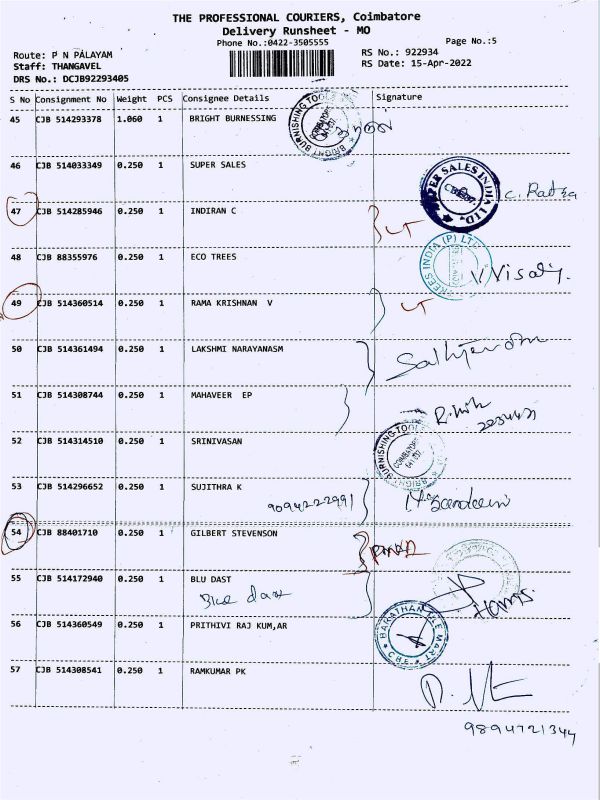 THE PROFESSIONAL COURIERS, Coimbatore
Delivery Runsheet - MO
Phone No.:0422-3505555
Page No.:5
Route: P N PALAYAM
RS No.: 922934
Staff: THANGAVEL
RS Date: 15-Apr-2022
DRS No.: DCJB92293405
S No Consignment No Weight PCS Consignee Details Signature
45 CJB 514293378 1.060 1 BRIGHT BURNESSING
BRIGHT BURNISHING TOOLS
46 CJB 514033349 0.250 1 SUPER SALES
SUPER SALES INDIA LTD.
47 CJB 514285946 0.250 1 INDIRAN C
48 CJB 88355976 0.250 1 ECO TREES
TREES INDIA (P) LTD
49 CJB 514360514 0.250 1 RAMA KRISHNAN V
50 CJB 514361494 0.250 1 LAKSHMI NARAYANASM
51 CJB 514308744 0.250 1 MAHAVEER EP
52 CJB 514314510 0.250 1 SRINIVASAN
BRIGHT BURNISHING TOOLS
COIMBATORE
53 CJB 514296652 0.250 1 SUJITHRA K
9094222991
54 CJB 88401710 0.250 1 GILBERT STEVENSON
55 CJB 514172940 0.250 1 BLU DAST
Blue dast
56 CJB 514360549 0.250 1 PRITHIVI RAJ KUM,AR
57 CJB 514308541 0.250 1 RAMKUMAR PK
9894721344